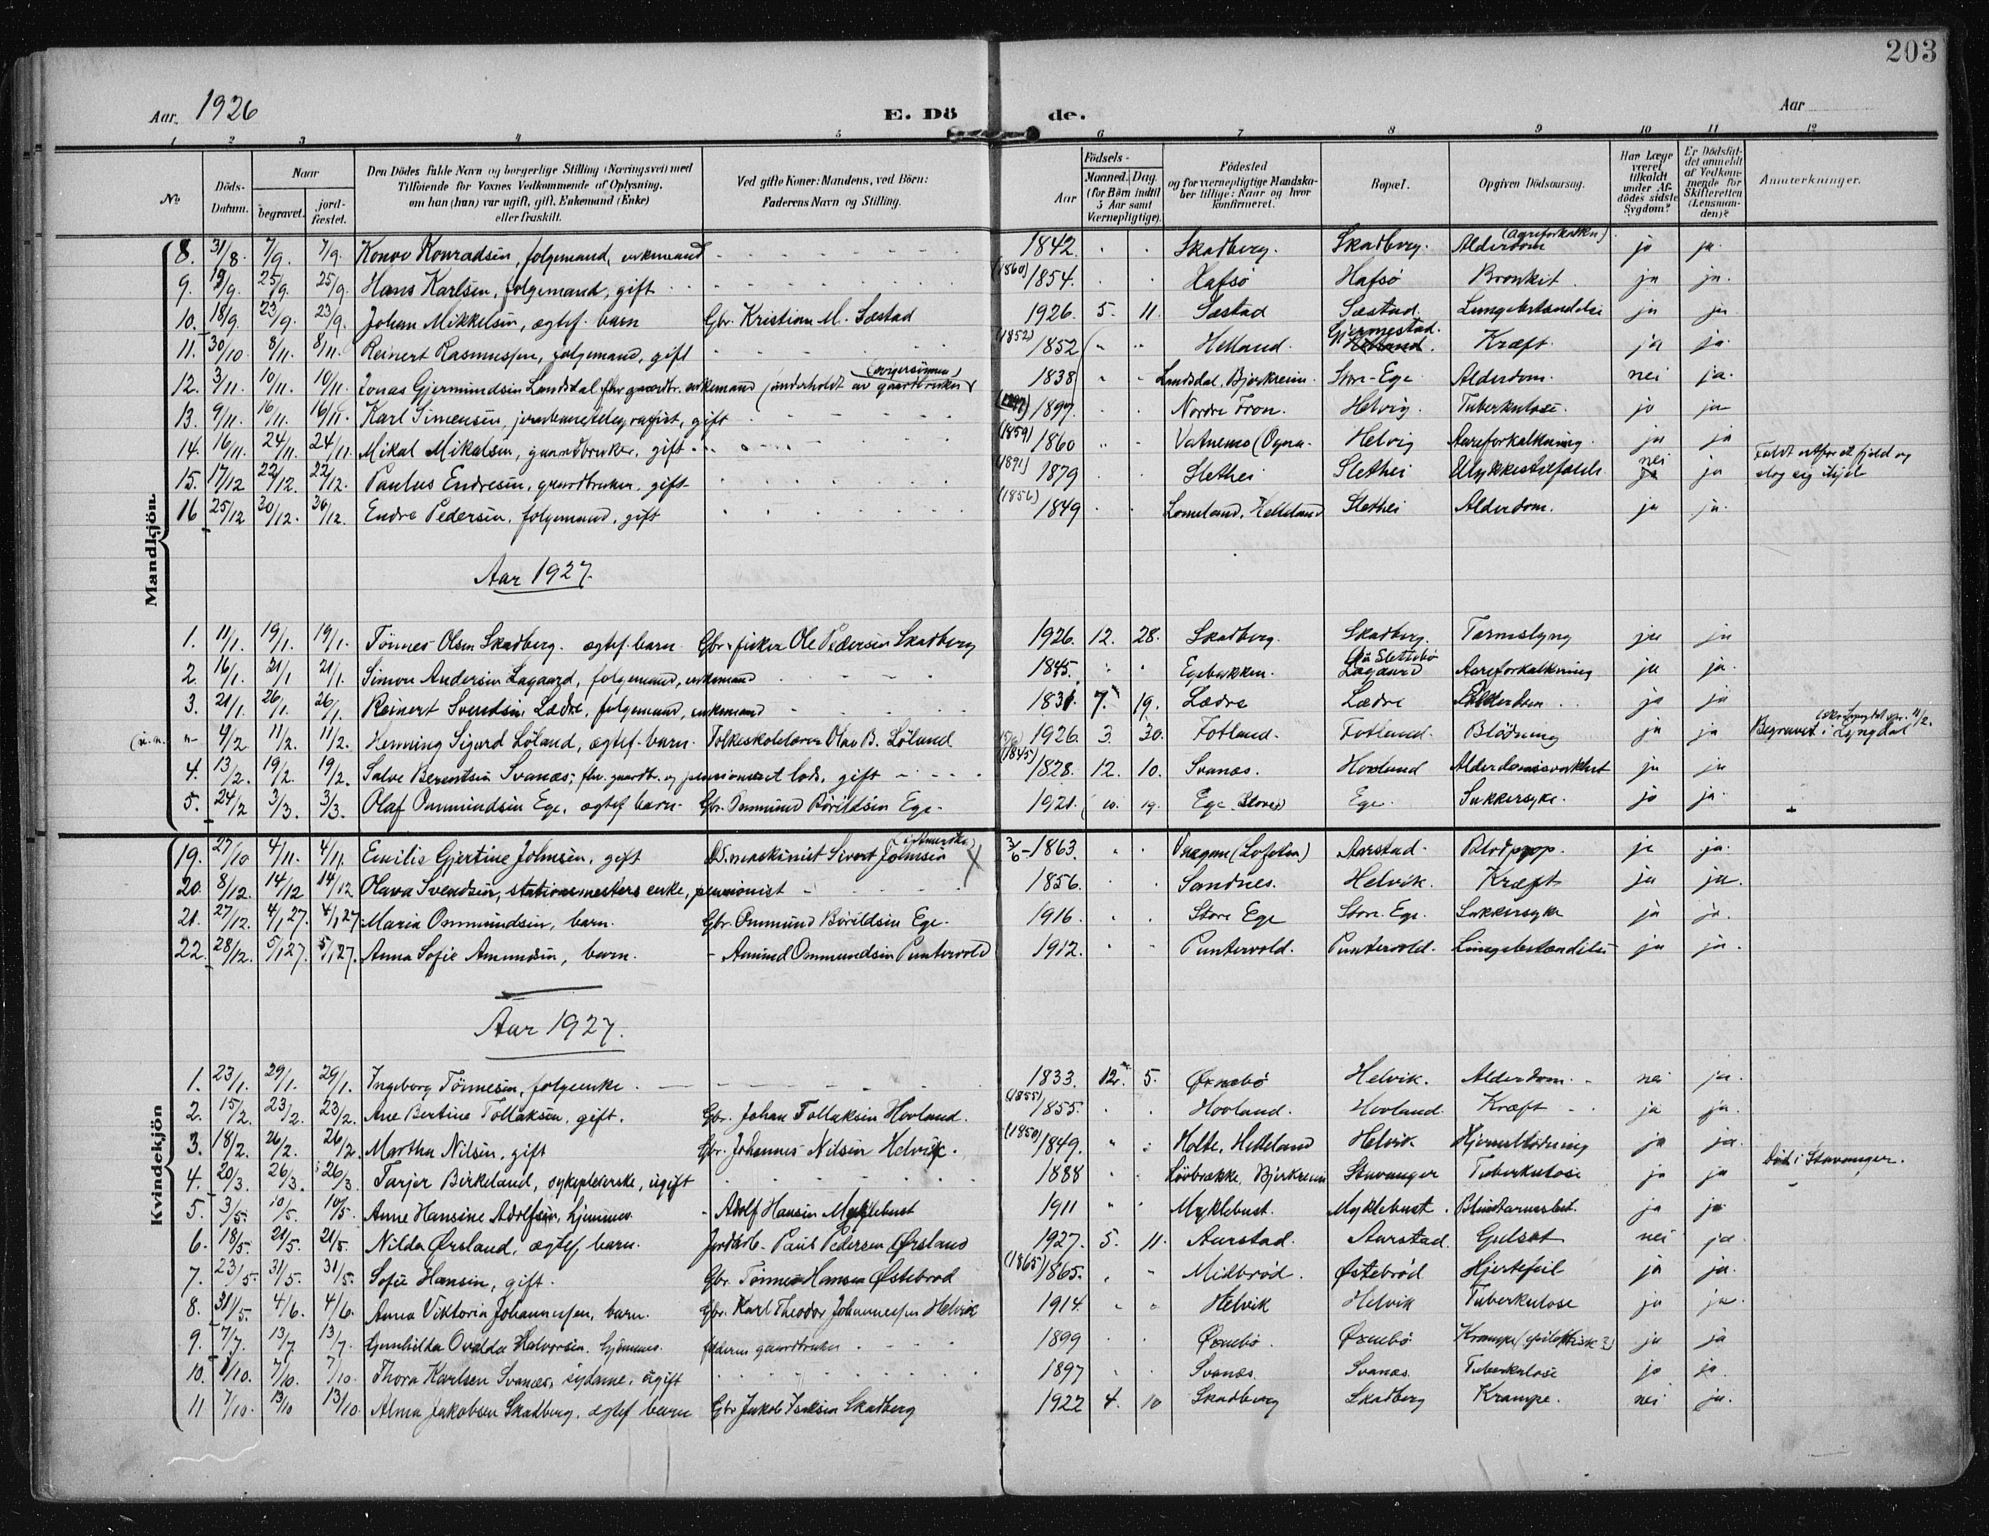 203
Aar 1926 E. Dö de. Aar
1 2 3 4 5 6 7 8 9 10 11 12
No. Döds-Datum. Naar begravet. jordfæstet. Den Dödes fulde Navn og borgerlige Stilling (Næringsvei) med Tilføiende for Voxnes Vedkommende af Oplysning, om han (hun) var ugift, gift, Enkemand (Enke) eller fraskilt. Ved gifte Koner: Mandens, ved Börn: Faderens Navn og Stilling. Födsels- Aar Maaned. Dag. (for Börn indtil 5 Aar samt Værnepligtige). Födested og for værnepligtige Mandskaber tillige: Naar og hvor konfirmeret. Bopæl. Opgiven Dödsaarsag. Har Læge været tilkaldt under Afdödes sidste Sygdom? Er Dödsfaldet anmeldt af Vedkommende for Skifteretten (Lensmanden)? Anmerkninger.
Mandkjön.
8. 31/8 7/9. 7/9. Konov Konradsen, folgemand, enkemand 1842. Skadberg. Skadberg. Alderdom (Aareforkalkn). ja ja.
9. 19/9. 25/9 25/9 Hans Karlsen, folgemand, gift (1860) 1854. Hafsö Hafsö Bronkit. ja ja.
10. 18/9. 23/9. 23/9. Johan Mikkelsen, ægtef. barn Gbr. Kristian M. Sæstad 1926 5. 11. Sæstad Sæstad. Lungebetændelse ja ja.
11. 30/10 8/11. 8/11. Reinert Rasmussen, folgemand, gift (1852) 1852 Helland. Gjermestad. Kræft. ja ja.
12. 3/11. 10/11. 10/11. Jonas Gjermundsen Landsdal fhv. gaardbr. enkemand (underholdt av svigersönnen gaardbruker) 1838 Landsdal, Bjerkreim. Store-Ege Alderdom. nei ja.
13. 9/11. 16/11. 16/11. Karl Simensen, jernbanetelegrafist, gift 1897. Nordre Fron. Helvig. Tuberkulose. ja ja
14. 16/11. 24/11. 24/11. Mikal Mikalsen, gaardbruker, gift (1859) 1860 Vatnemo (Ogna Helvig Aareforkalkning. ja ja
15. 17/12 22/12. 22/12. Paulus Endresen, gaardbruker, gift (1871) 1879 Slethei Slethei Ulykkestilfælde nei ja Faldt utfor et fjeld og slog sig ihjel
16 25/12 30/12. 30/12. Endre Pedersen, folgemand, gift (1856) 1849 Lomeland, Helleland Slethei Alderdom. ja ja.
Aar 1927.
1. 11/1. 19/1. 19/1. Tönnes Olsen Skadberg. ægtef. barn Gbr. fisker Ole Pedersen Skadberg 1926. 12. 28. Skadberg. Skadberg. Tarmslyng ja ja
2. 16/1. 21/1 21/1. Simon Andersen Lagaard, folgemand, enkemand 1845. Egebakken. Lagaard på Slettebö Aareforkalkning ja ja.
3. 21/1. 26/1. 26/1. Reinert Svendsen Lædre, folgemand, enkemand 1831 7. 19. Lædre Lædre Alderdom ja ja
(u.n. 4/2 11/2. 11/2. Henning Sigurd Löland, ægtef. barn. Folkeskolelærer Olav B. Löland 1926. 3. 30. Fotland. Fotland. Blödning ja ja Begravet i Lyngdal
4. 13/2. 19/2. 19/2. Salve Berentsen Svanæs; fhv. gaardbr. og pensioneret lods, gift (1845) 1828. 12. 10. Svanæs. Hovland Alderdomssvakhet ja ja
5. 24/2 3/3. 3/3. Olaf Ommundsen Ege, ægtef barn. Gbr. Ommund Böríldsen Ege. 1921. 10. 19. Ege Ege. Sukkersyke. ja ja.
Kvindekjön
19. 27/10 4/11. 4/11. Emilie Gjertine Johnsen, gift DS. maskinist Sivert Johnsen (i Amerika) X 3/6-1863. (Lofoten) Aarstad. Blodprop. ja ja.
20. 8/12. 14/12 14/12 Olava Svendsen, stationsmesters enke, pensionist 1856. Sandnes. Helvik. Kræft ja ja.
21. 27/12. 4/1 27. 4/1 27 Maria Ommundsen, barn. Gbr. Ommund Böríldsen Ege. 1916. Store Ege Store-Ege. Sukkersyke ja ja.
22. 28/12. 5/1 27. 5/1 27. Anna Sofie Amundsen, barn. - Amund Ommundsen Puntervold 1912. Puntervold. Puntervold. Lungebetændelse ja ja.
Aar 1927.
1. 23/1. 29/1. 29/1. Ingeborg Tönnesen, folgeenke. 1833. 12. 5. Öxnebö Helvik. Alderdom. nei ja.
2. 15/2. 23/2. 23/2. Ane Bertine Tollaksen, gift. Gbr. Johan Tollaksen Hovland. (1855) 1855. Hovland. Hovland. Kræft ja ja.
3. 18/2. 26/2. 26/2. Martha Nilsen, gift Gbr. Johannes Nilsen Helvik. (1850) 1849. Holte, Helleland Helvik Hjerneblödning ja ja.
4. 20/3. 26/3. 26/3. Tarjer Birkeland, sykepleierske, ugift 1888 Lövbrække, Bjerkreim Stavanger Tuberkulose ja ja Död i Stavanger.
5. 3/5. 10/5. 10/5. Anne Hansine Adolfsen, hjemmev. - Adolf Hansen Myklebust 1911 Myklebust. Myklebust. Blindtarmsbet. ja ja
6. 18/5. 21/5. 21/5. Nilda Örsland, ægtef. barn. Jordarb. Paul Pedersen Örsland 1927. 5. 11. Aarstad. Aarstad. Gulsot nei ja
7. 23/5. 31/5. 31/5. Sofie Hansen, gift. Gbr. Tönnes Hansen Östebröd (1865) 1865. Midbröd. Östebröd Hjertefeil ja ja.
8. 31/5. 4/6. 4/6. Anna Viktoria Johannessen, barn. Gbr. Karl Theodor Johannessen Helvik 1914 Helvik Helvik Tuberkulose ja ja
9. 7/7. 13/7 13/7. Gunhilda Ovalda Halvorsen. hjemmev. faderen gaardbruker 1899 Öxnebö. Öxnebö Krampe (epileptisk?) ja ja
10. 1/10. 7/10. 7/10. Thora Karlsen Svanæs, sydame, ugift 1897 Svanæs. Svanæs. Tuberkulose ja ja
11 7/10. 13/10 13/10. Alma Jakobsen Skadberg, ægtef barn Gbr Jakob Isaksen Skadberg 1922 4. 10 Skadberg Skadberg Krampe. nei ja.